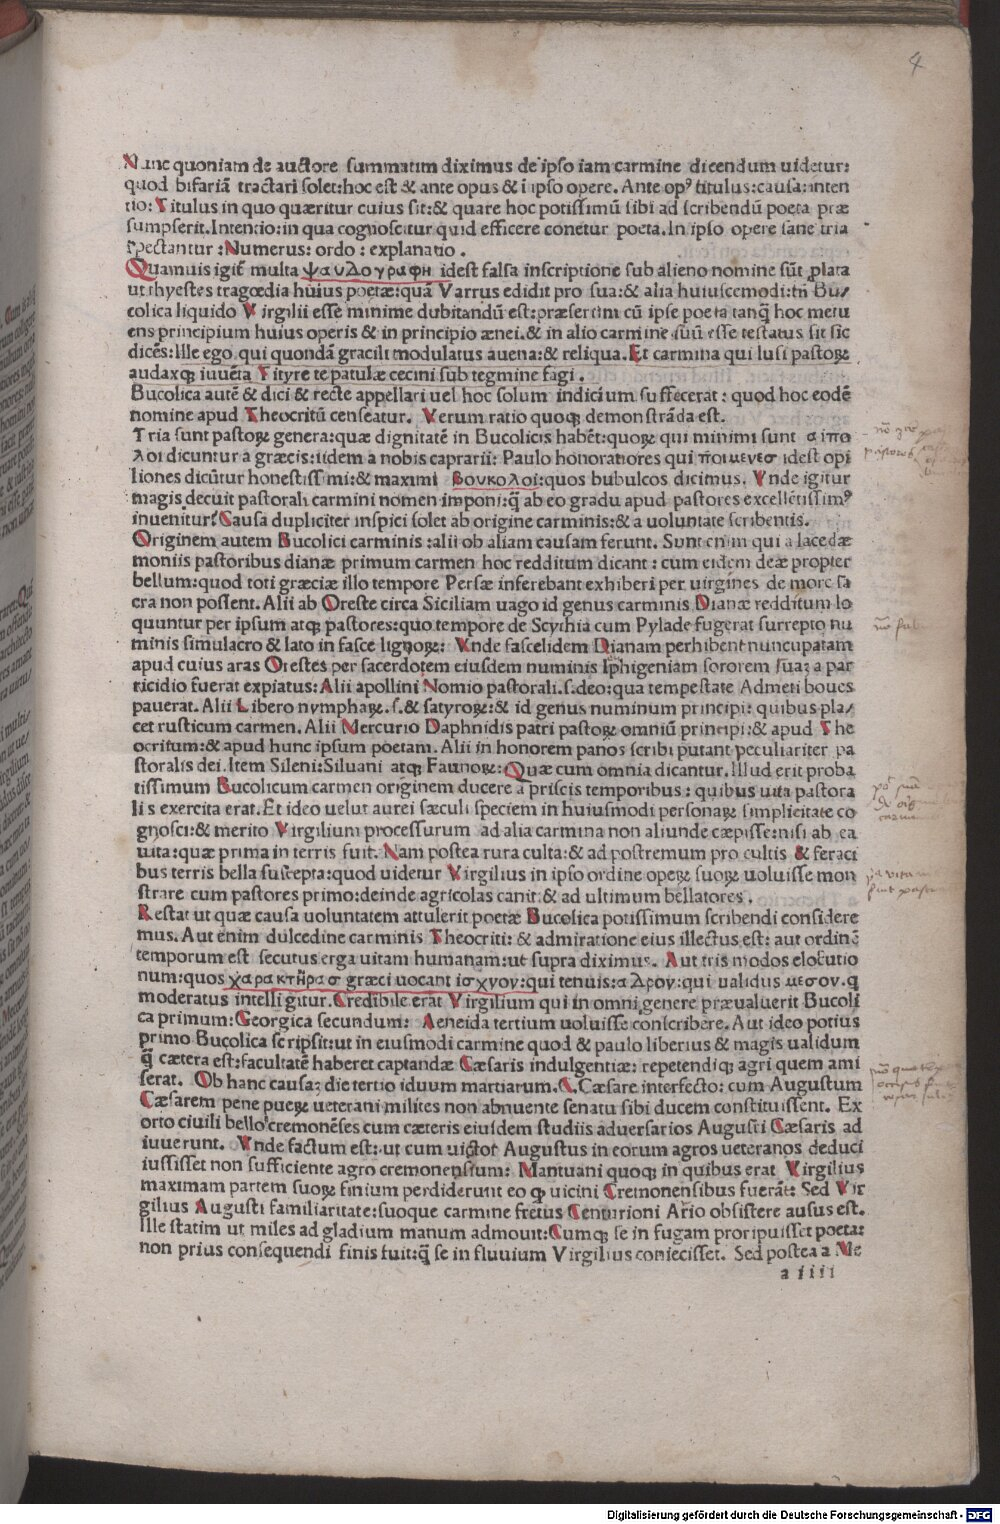 4
Nunc quoniam de auctore summatim diximus de ipso iam carmine dicendum uidetur:
quod bifariã tractari solet:hoc est & ante opus & ĩ ipso opere. Ante opꝰ titulus:causa:inten
tio: Titulus in quo quæritur cuius sit:& quare hoc potissimũ sibi ad scribendũ poeta præ
sumpserit.Intentio:in qua cognoscitur quid efficere conetur poeta.In ipso opere sane tria
spectantur :Numerus: ordo : explanatio .
Quamuis igit̃ multa ψαυλογραφη idest falsa inscriptione sub alieno nomine sũt plata
ut thyestes tragœdia huius poetæ:quã Varrus edidit pro sua:& alia huiuscemodi:tñ Bu/
colica liquido Virgilii esse minime dubitandũ est:præsertim cũ ipse poeta tanꝗ̃ hoc metu
ens principium huius operis & in principio ænei.& in alio carmine suũ esse testatus sit sic
dicẽs:Ille ego qui quondã gracili modulatus auena:& reliqua.Et carmina qui lusi pastoꝝ
audaxqꝫ iuuẽta Tityre te patulæ cecini sub tegmine fagi .
Bucolica autẽ & dici & recte appellari uel hoc solum indicium suffecerat : quod hoc eodẽ
nomine apud Theocritũ censeatur. Verum ratio quoqꝫ demonstrãda est.
Tria sunt pastoꝝ genera:quæ dignitatẽ in Bucolicis habẽt:quoꝝ qui minimi sunt σιπο
λοι dicuntur a græcis:iidem a nobis caprarii: Paulo honoratiores qui ποιμενεσ idest opi
liones dicũtur honestissimi:& maximi βουκολοι:quos bubulcos dicimus. Vnde igitur
magis decuit pastorali carmini nomen imponi:ꝗ̃ ab eo gradu apud pastores excellẽtissimꝰ
inuenitur?Causa dupliciter inspici solet ab origine carminis:& a uoluntate scribentis.
Originem autem Bucolici carminis :alii ob aliam causam ferunt. Sunt enim qui a lacedæ
moniis pastoribus dianæ primum carmen hoc redditum dicant : cum eidem deæ propter
bellum:quod toti græciæ illo tempore Persæ inferebant exhiberi per uirgines de more sa
cra non possent. Alii ab Oreste circa Siciliam uago id genus carminis Dianæ redditum lo
quuntur per ipsum atqꝫ pastores:quo tempore de Scythia cum Pylade fugerat surrepto nu
minis simulacro & lato in fasce lignoꝝ: Vnde fascelidem Dianam perhibent nuncupatam
apud cuius aras Orestes per sacerdotem eiusdem numinis Iphigeniam sororem suaꝫ a par
ricidio fuerat expiatus:Alii apollini Nomio pastorali.s.deo:qua tempestate Admeti boues
pauerat. Alii Libero nymphaꝝ.s.& satyroꝝ:& id genus numinum principi: quibus pla/
cet rusticum carmen. Alii Mercurio Daphnidis patri pastoꝝ omniũ principi:& apud The
ocritum:& apud hunc ipsum poetam. Alii in honorem panos scribi putant peculiariter pa
storalis dei.Item Sileni:Siluani atqꝫ Faunoꝝ:Quæ cum omnia dicantur.Illud erit proba
tissimum Bucolicum carmen originem ducere a priscis temporibus : quibus uita pastora
lis exercita erat.Et ideo uelut aurei sæculi speciem in huiusmodi personaꝝ simplicitate co
gnosci:& merito Virgilium processurum ad alia carmina non aliunde cæpisse:nisi ab ea
uita:quæ prima in terris fuit. Nam postea rura culta:& ad postremum pro cultis & feraci
bus terris bella suscepta:quod uidetur Virgilius in ipso ordine opeꝝ suoꝝ uoluisse mon
strare cum pastores primo:deinde agricolas canit:& ad ultimum bellatores .
Restat ut quæ causa uoluntatem attulerit poetæ Bucolica potissimum scribendi considere
mus. Aut enim dulcedine carminis Theocriti: & admiratione eius illectus est: aut ordinẽ
temporum est secutus erga uitam humanam:ut supra diximus. Aut tris modos elocutio
num:quos χαρακτηρασ græci uocant ισχνον:qui tenuis:αδρον:qui ualidus μεσον.q
moderatus intelligitur.Credibile erat Virgilium qui in omni genere præualuerit Bucoli
ca primum:Georgica secundum: Aeneida tertium uoluisse conscribere. Aut ideo potius
primo Bucolica scripsit:ut in eiusmodi carmine quod & paulo liberius & magis ualidum
ꝗ̃ cætera est:facultatẽ haberet captandæ Cæsaris indulgentiæ: repetendiqꝫ agri quem ami
serat. Ob hanc causaꝫ die tertio iduum martiarum.C.Cæsare interfecto: cum Augustum
Cæsarem pene pueꝝ ueterani milites non abnuente senatu sibi ducem constituissent. Ex
orto ciuili bello cremonẽses cum cæteris eiusdem studiis aduersarios Augusti Cæsaris ad
iuuerunt. Vnde factum est:ut cum uictor Augustus in eorum agros ueteranos deduci
iussisset non sufficiente agro cremonensium: Mantuani quoqꝫ in quibus erat Virgilius
maximam partem suoꝝ finium perdiderunt eo ꝙ uicini Cremonensibus fuerãt: Sed Vir
gilius Augusti familiaritate:suoque carmine fretus Centurioni Ario obsistere ausus est.
Ille statim ut miles ad gladium manum admouit:Cumqꝫ se in fugam proripuisset poeta:
non prius consequendi finis fuit:ꝗ̃ se in fluuium Virgilius coniecisset. Sed postea a Me
a iiii
Digitalisierung gefördert durch die Deutsche Forschungsgemeinschaft - DFG